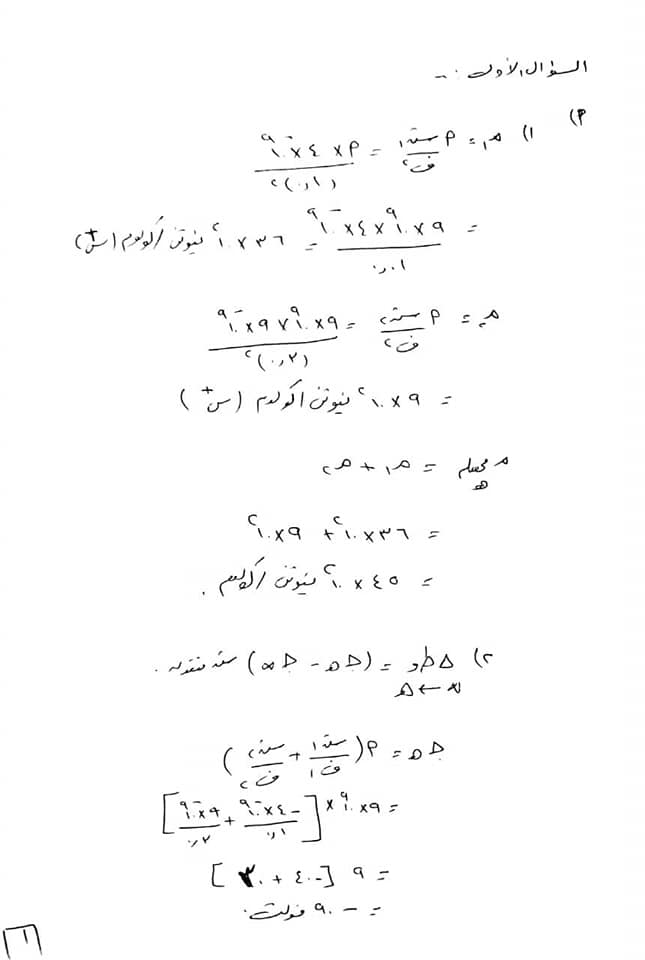 السؤال الأول :-
أ) ١) م١ = أ سـ١ / ف٢ = أ × ٤ × ١٠-٩ / (٠,١)٢
= ٩ × ١٠٩ × ٤ × ١٠-٩ / ٠,٠١ = ٣٦ × ١٠٢ نيوتن / كولوم (س+)
م٢ = أ سـ٢ / ف٢ = ٩ × ١٠٩ × ٩ × ١٠-٩ / (٠,٣)٢
= ٩ × ١٠٢ نيوتن / كولوم (س+)
م محصلة هـ = م١ + م٢
= ٣٦ × ١٠٢ + ٩ × ١٠٢
= ٤٥ × ١٠٢ نيوتن / كولوم .
٢) Δ ط و ∞ ← هـ = (جـ هـ - جـ ∞) سـ منقولة .
جـ هـ = أ (سـ١ / ف١ + سـ٢ / ف٢)
= ٩ × ١٠٩ × [-٤ × ١٠-٩ / ٠,١ + ٩ × ١٠-٩ / ٠,٣]
= ٩ [-٤٠ + ٣٠]
= -٩٠ فولت.
١